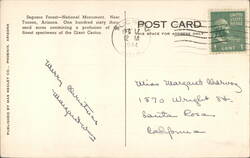 Saguaro Forest—National Monument. Near
Tucson, Arizona. One hundred sixty thou-
sand acres containing a profusion of the
finest specimens of the Giant Cactus.
POST CARD
THIS SPACE FOR ADDRESS ONLY
12 M
1¢
PUBLISHED BY
PHOENIX, ARIZONA
Merry Christmas
Margaret
Miss Margaret
1870 Wright St.
Santa Rosa
California